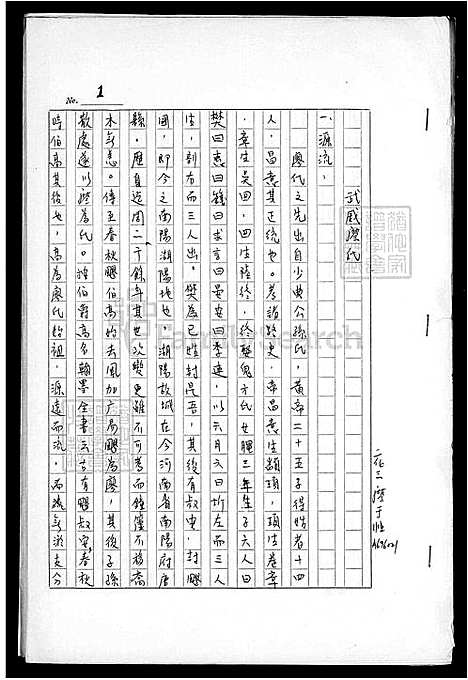 No. 1
武威廖氏
一、源流：
廖氏之先出自少典公孫氏，黃帝二十五子得姓者十四
人，昌意其正統也。考諸路史，帝昌意生顓頊，頊生卷章
，章生吳回，回生陸終，終娶鬼方氏女嬇三年生子六人曰
樊曰惠曰籛曰求言曰晏安曰季連，以六月六日坼左而三人
生，剖右而三人出，樊為己姓封昆吾，其後有叔安，封飂
國，即今之南陽湖陽地也，湖陽故城在今河南省南陽府唐
縣，歷自造周二千餘年其世次變更雖不可考而鐘簴不移喬
木無恙。傳至春秋飂伯高始去風加广易飂為廖，其後子孫
散處遂以廖為氏。按伯爵高名翰墨全書云古有飂叔安，春秋
時伯高其後也，高為廖氏始祖，源遠而流，而 支分
FamilySearch